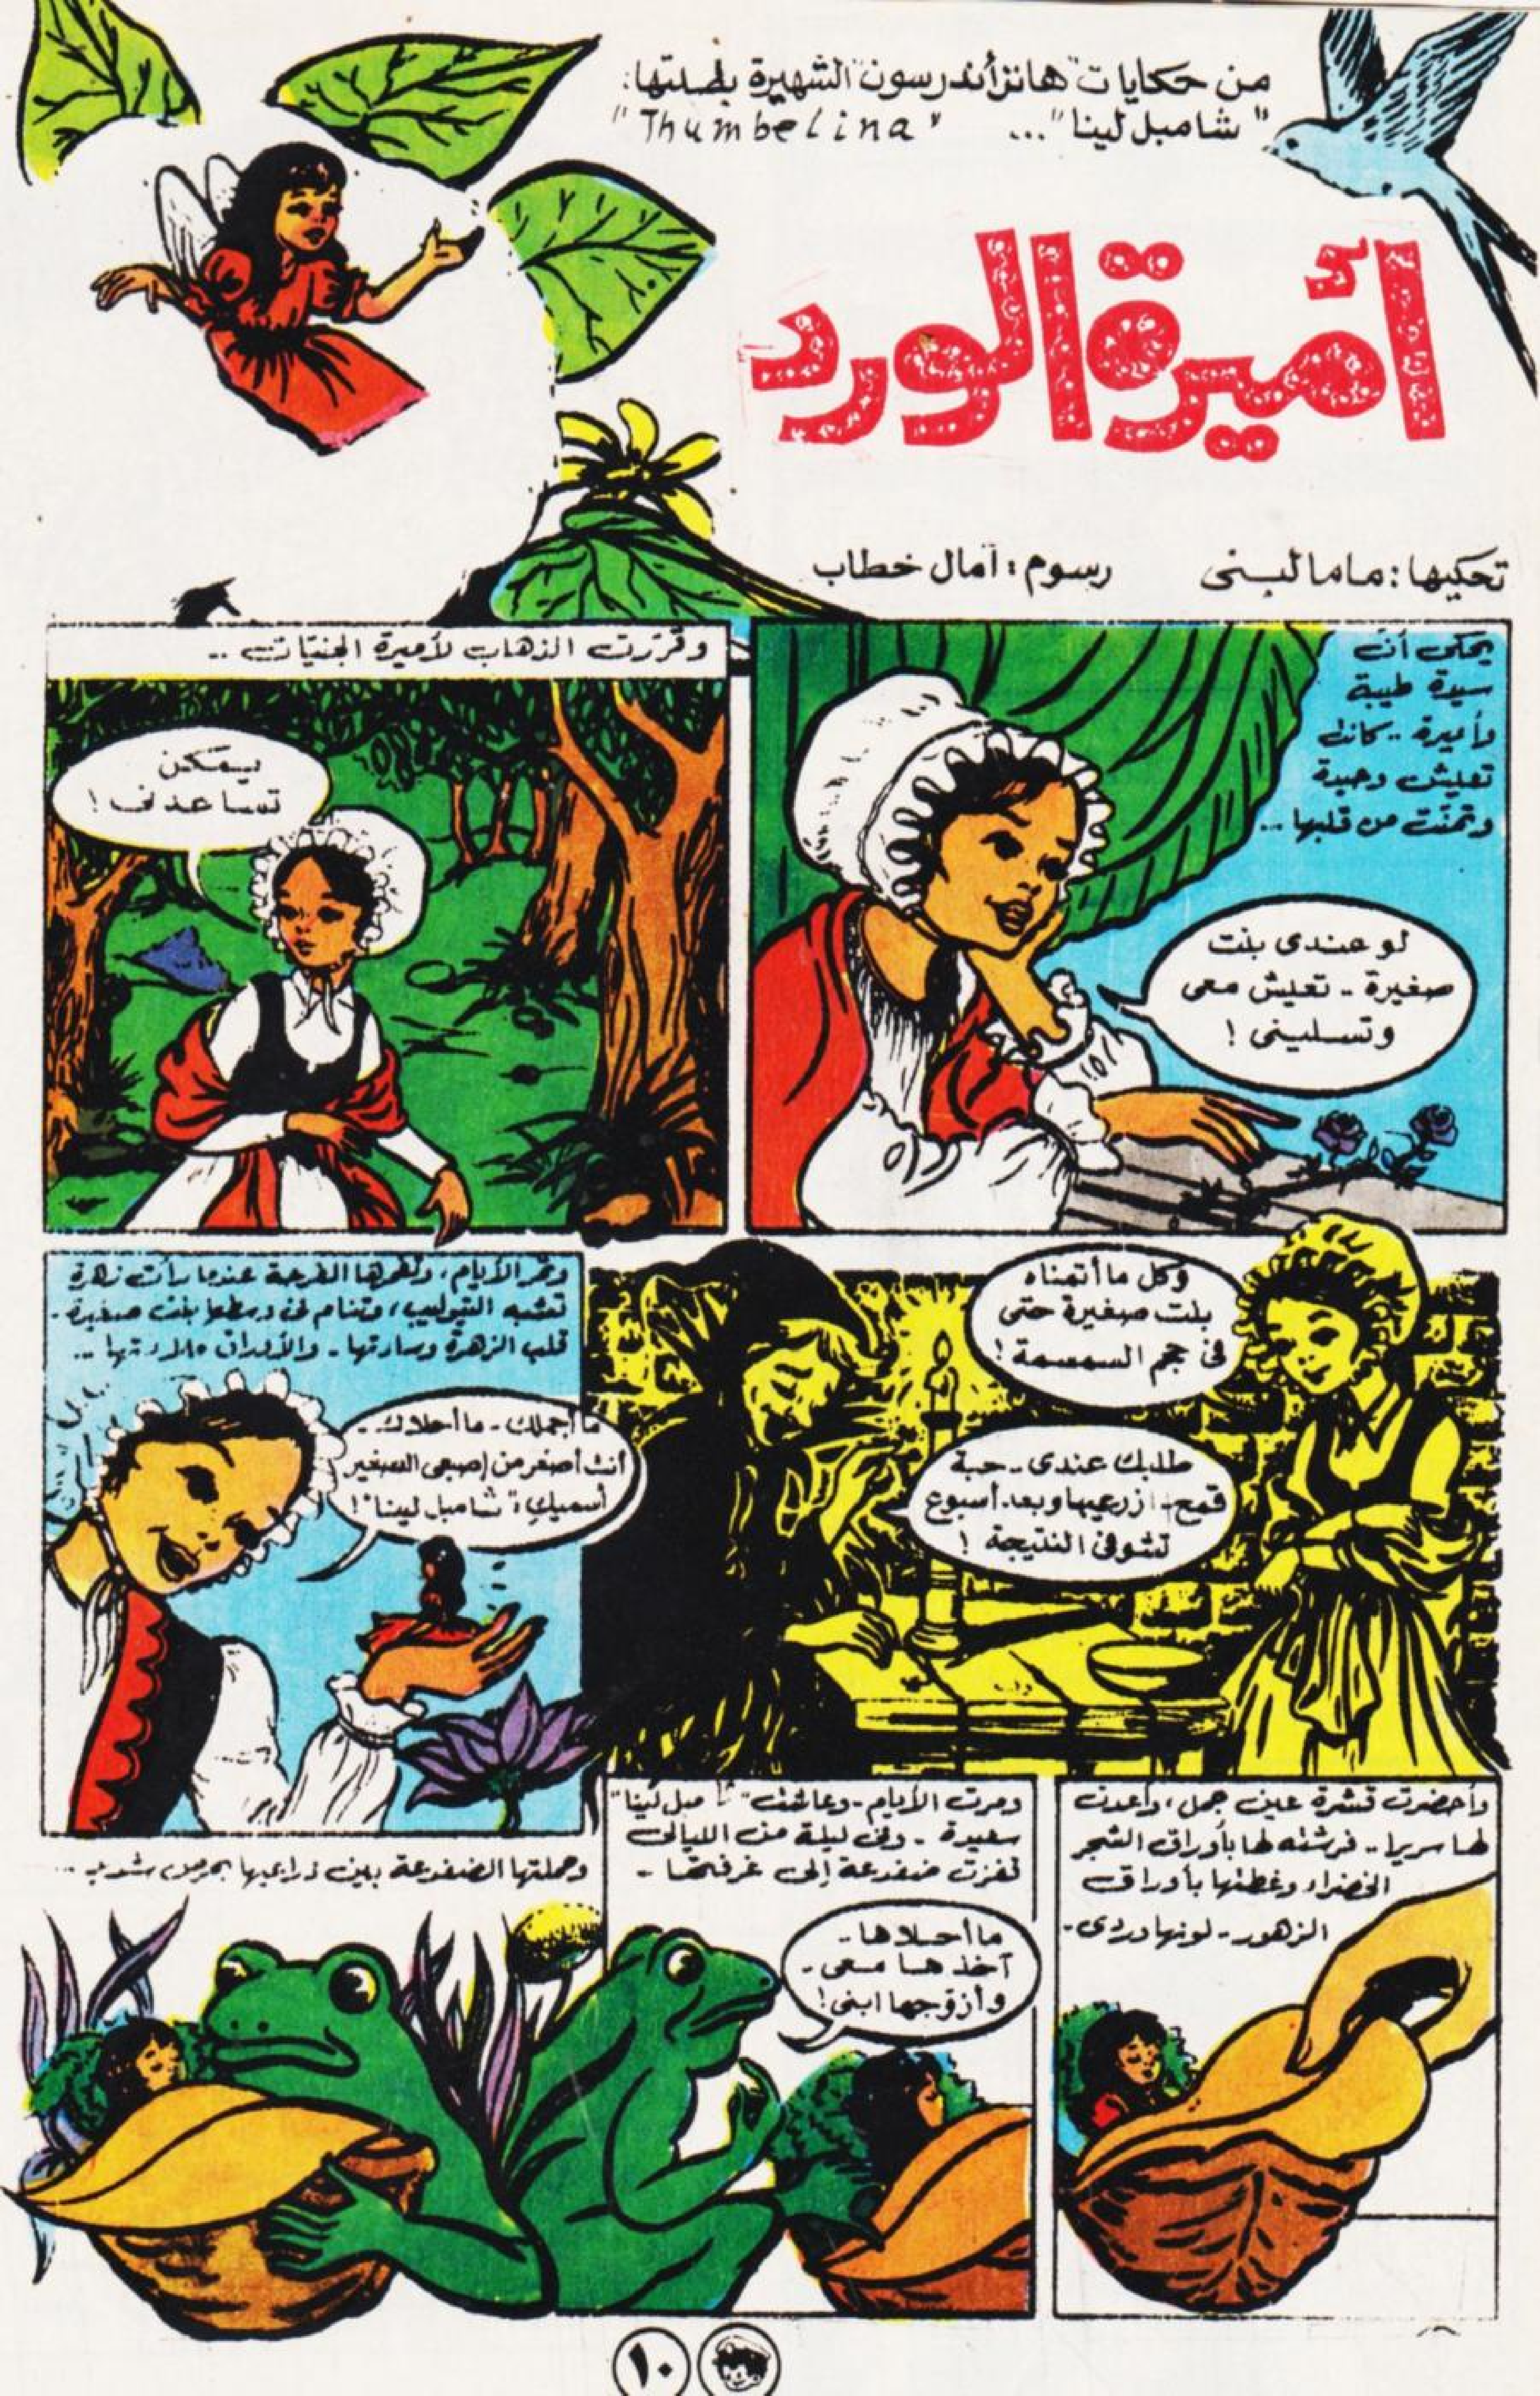 من حكايات "هانز أندرسون" الشهيرة بطلتها:
"شامبل لينا"... "Thumbelina"
أميرة الورد
تحكيها: ماما لبنى
رسوم: آمال خطاب
يحكى أن
سيدة طيبة
وأميرة .. كانت
تعيش وحيدة
وتمنت من قلبها ...
لو عندى بنت
صغيرة .. تعيش معى
وتسلينى !
وقررت الذهاب لأميرة الجنيات ..
يمكن
تساعدنى !
وكل ما أتمناه
بنت صغيرة حتى
فى حجم السمسمة !
طلبك عندى .. حبة
قمح - ازرعيها وبعد أسبوع
تشوفى النتيجة !
وتمر الأيام، وتغمرها الفرحة عندما رأت زهرة
تشبه التيوليب، وتنام فى وسطها بنت صغيرة -
قلب الزهرة وسادتها - والأوراق ملاءتها ..
ما أجملك - ما أحلاك -
أنت أصغر من إصبعى الصغير
أسميك "شامبل لينا" !
وأحضرت قشرة عين جمل، وأعدت
لها سريرا .. فرشته لها بأوراق الشجر
الخضراء وغطتها بأوراق
الزهور - لونها وردى -
ومرت الأيام - وعاشت "شامبل لينا"
سعيدة - وفى ليلة من الليالى
قفزت ضفدعة إلى غرفتها -
ما أحلاها -
آخدها معى -
وأزوجها ابنى !
وحملتها الضفدعة بين ذراعيها بحرص شديد ...
١٠